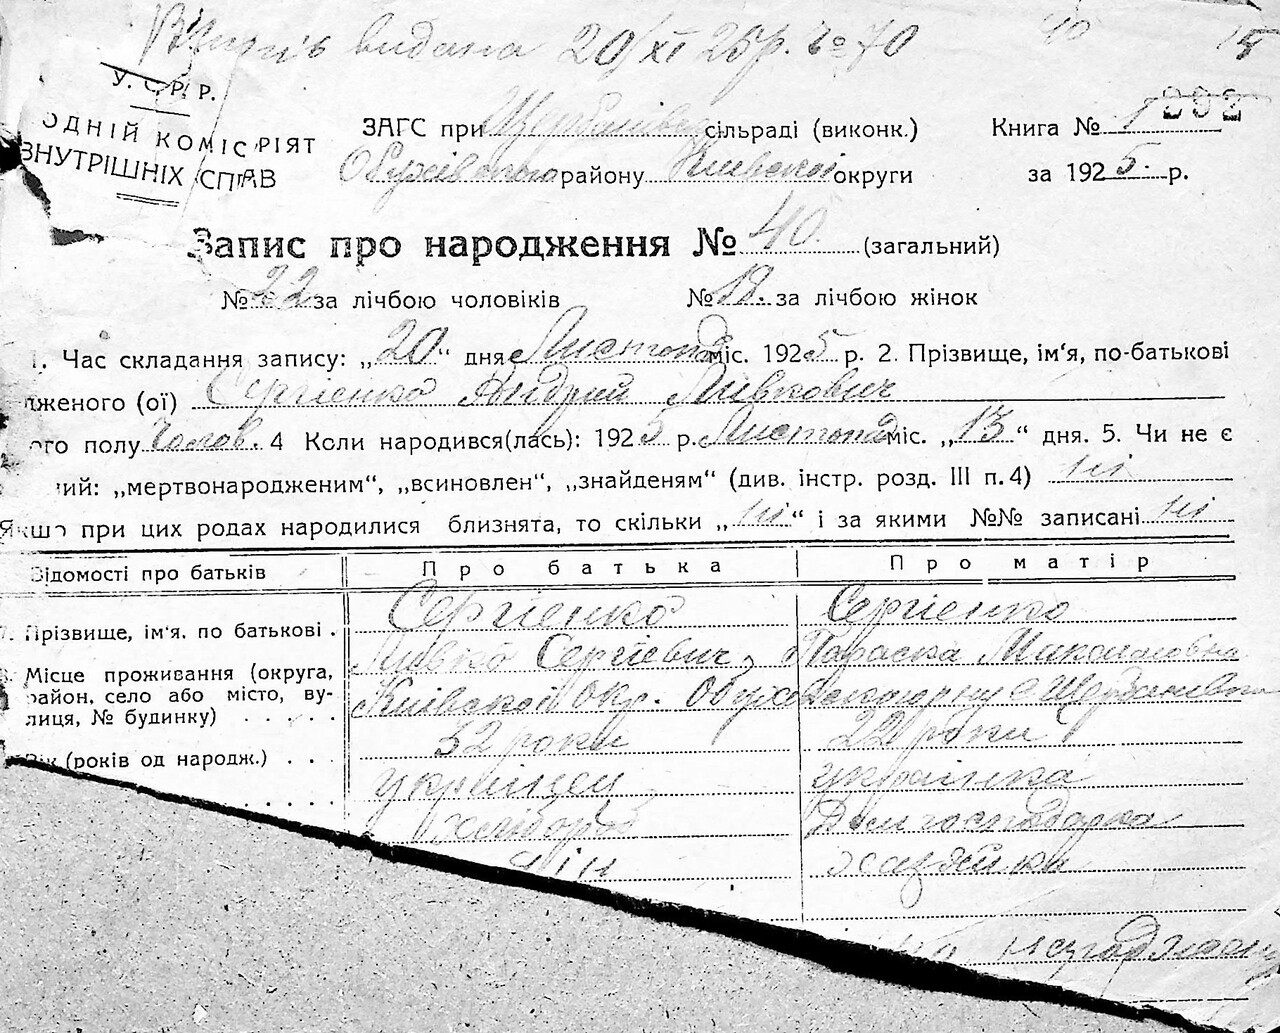 Витпів видана 20/XI 25 р. № 70 40
У. С. Р. Р.
ОДНІЙ КОМІСРІЯТ
ВНУТРІШНІХ СПРАВ
ЗАГС при Щербанівській сільраді (виконк.) Книга № 1 292
Обухівського району Київської округи за 1925 р.
Запис про народження № 40 (загальний)
№ 22 за лічбою чоловіків № 18. за лічбою жінок
1. Час складання запису: „20“ дня Листопад міс. 1925 р. 2. Прізвище, ім'я, по-батькові
дженого (ої) Сергієнко Андрий Лівкович
ого полу Чолов. 4 Коли народився(лась): 1925 р. Листопад міс. „13“ дня. 5. Чи не є
ий: „мертвонародженим“, „всиновлен“, „знайденям“ (див. інстр. розд. III п. 4) ні
Якшо при цих родах народилися близнята, то скільки „ні“ і за якими №№ записані ні
Відомості про батьків Про батька Про матір
Прізвище, ім'я, по батькові . Сергієнко Сергієнко
Лівко Сергієвич, Параска Миколаївна
Місце проживання (округа,
район, село або місто, ву-
лиця, № будинку) . . . . . Київской Окр. Обухов
Вік (років од народж.) . . . 32 роки 22 роки
українец українка
хлибороб Домгосподарка